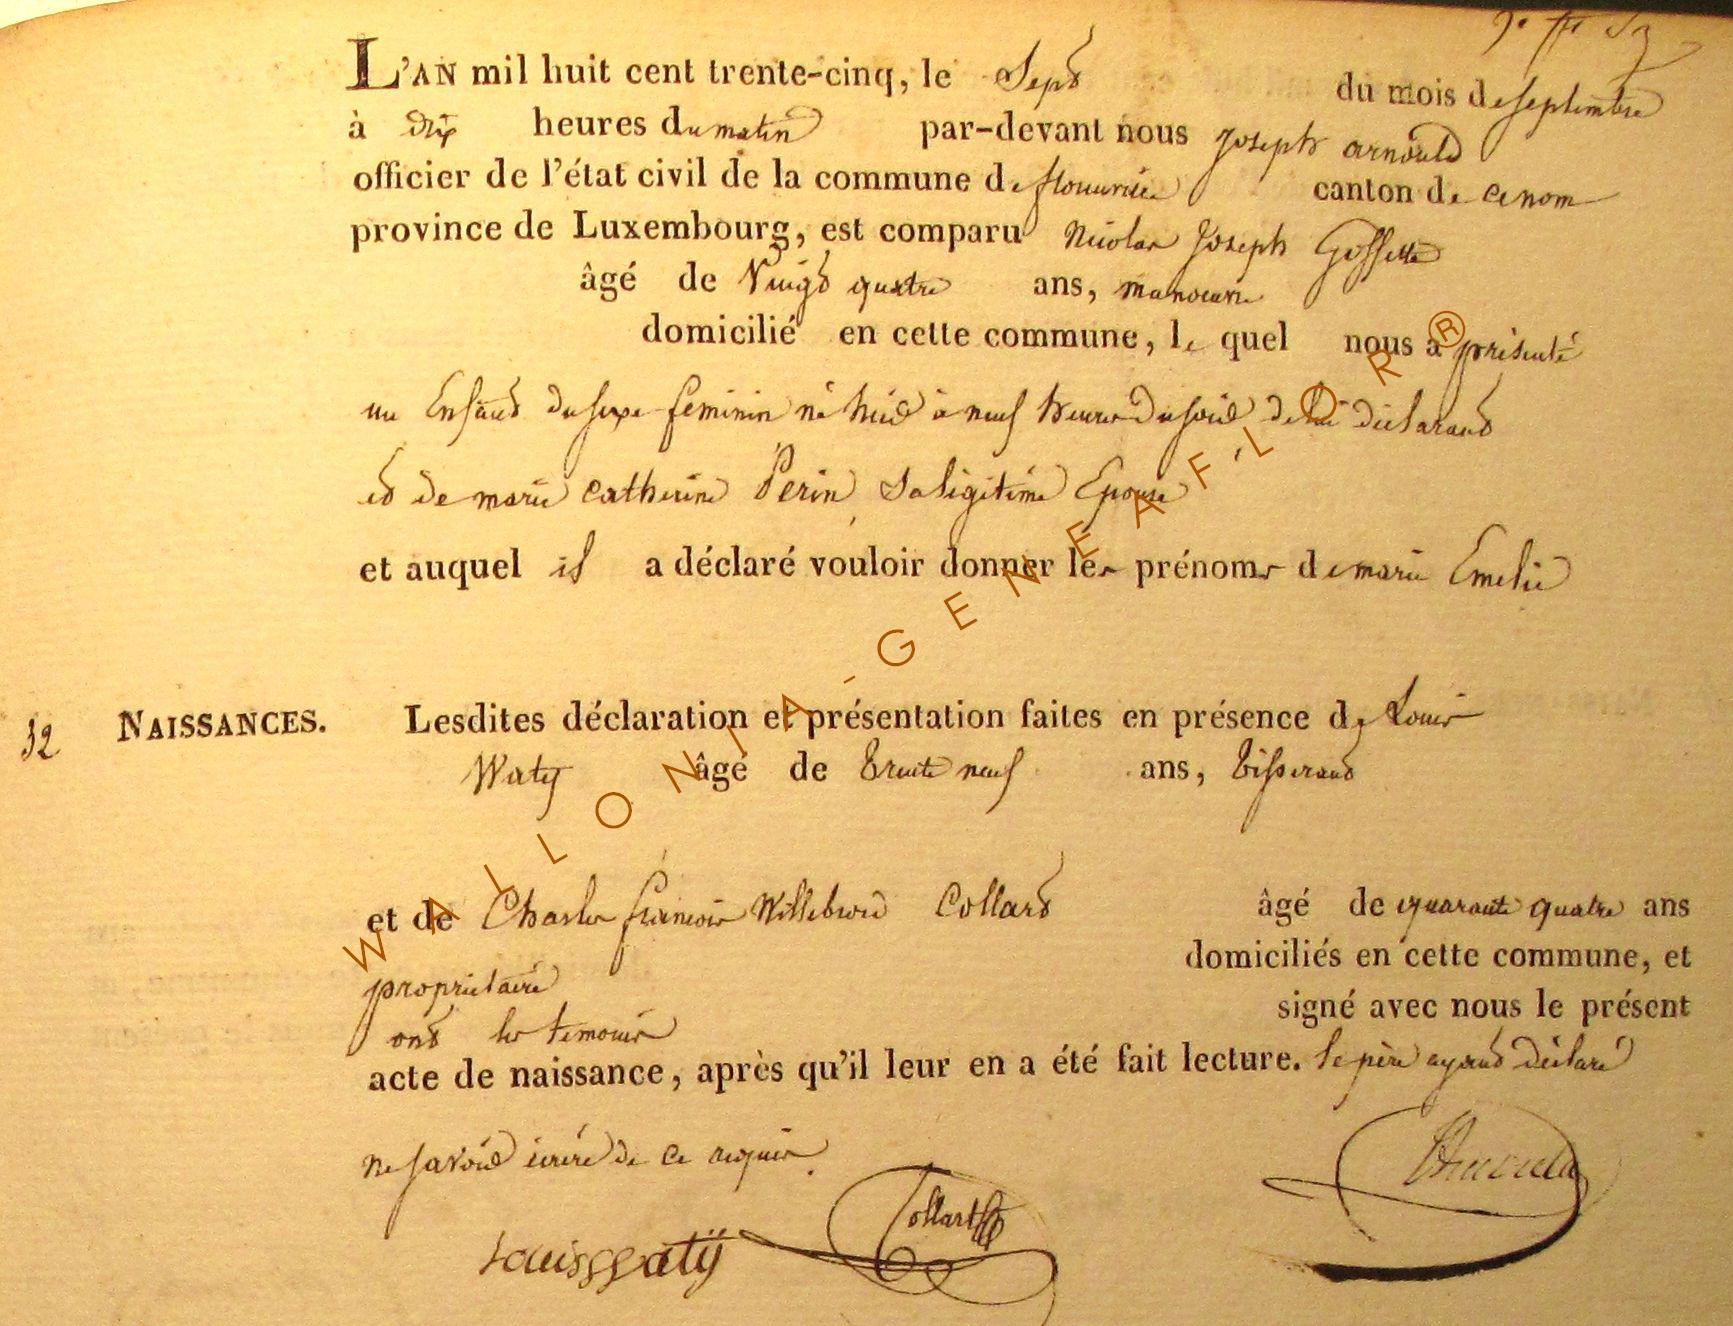 L'AN mil huit cent trente-cinq, le Sept du mois de septembre
à dix heures du matin par-devant nous Joseph arnould
officier de l'état civil de la commune de flourville canton de ce nom
province de Luxembourg, est comparu Nicolas Joseph Gossette
âgé de Vingt quatre ans, manoeuvre
domicilié en cette commune, le quel nous a présenté
un Enfant du sexe feminin né hier à neuf heures du soir de lui déclarant
et de marie catherine Perin, sa légitime Epouse
et auquel il a déclaré vouloir donner les prénoms de marie Emelie
52 NAISSANCES. Lesdites déclaration et présentation faites en présence de Louis
Waty âgé de trente neuf ans, tisserand
et de Charles françois Willebrord Collard âgé de quarante quatre ans
propriétaire domiciliés en cette commune, et
ont les temoins signé avec nous le présent
acte de naissance, après qu'il leur en a été fait lecture. le père ayant déclaré
ne savoir écrire de ce requis.
Louis Watÿ Collart
WALLONIA-GENEAFLOR ®